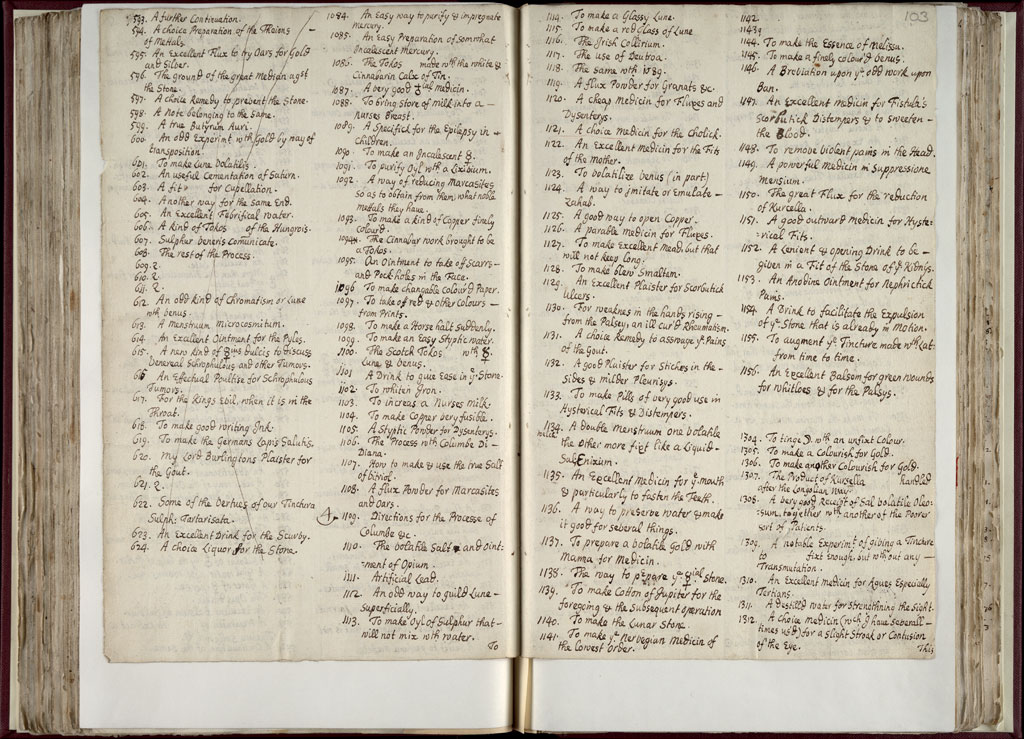 593. A further Continuation.
594. A choice Preparation of the
of Mettals.
595. An Excellent Flux to try Oars for Gold
and Silver.
596. The ground of the great Medicin agst
the Stone.
597. A choice Remedy to prevent the Stone.
598. A Note belonging to the Same.
599. A true Butyrum Auri.
600. An odd Experimt with Gold by way of
transposition.
601. To make Lune Volatilis.
602. An useful Cementation of Saturn.
603. A fit for Cupellation.
604. Another way for the same End.
605. An Excellent Febrifical water.
606. A kind of Tokos of the Hungrois.
607. Sulphur Veneris Comunicate.
608. The rest of the Process.
609. 2.
610. 2.
611. 2.
612. An odd kind of Chromatism or Lune
with Venus.
613. A Menstruum Microcosmitum.
614. An Excellent Ointment for the Pyles.
615. A new kind of ☿ius Dulcis to discuss
Venereal Schrophulous and other Tumors.
616 An Effectual Poultise for Schrophulous
Tumors.
617. For the Kings Evil, when it is in the
Throat.
618. To make good writing Ink.
619. To make the Germans Lapis Salutis.
620. My Lord Burlingtons Plaister for
the Gout.
621. 2.
622. Some of the Vertues of our Tinctura
Sulph: Tartarisata.
623. An Excellent Drink for the Scurvy.
624. A choice Liquor for the Stone
1084. An Easy way to purify & impregnate
Mercury.
1085. An Easy Preparation of Somwhat
Incalescent Mercury.
1086. The Tokos made with the white &
Cinnabarin Calx of Tin.
1087. A very good medicin.
1088. To bring store of milk into a
nurses Breast.
1089. A Specifick for the Epilepsy in
Children.
1090. To make an Incalescent ☿.
1091. To purify Oyl with a Lixivium.
1092. A way of reducing Marcasites
so as to obtain from them, what noble
Metals they have.
1093. To make a kind of Copper finely
Colour'd.
1094. The Cinnabar work brought to be
a Tokos.
1095. An Ointment to take of Scarrs
and Pock holes in the Face.
1096 To make changable colour'd Paper.
1097. To take of red & other Colours
from Prints.
1098. To make a Horse halt suddenly.
1099. To make an Easy Styptic water.
1100. The Scotch Tokos with ☿.
Lune & Venus.
1101 A Drink to give Ease in ye Stone.
1102. To whiten Iron.
1103. To increas a Nurses milk.
1104. To make Copper very fusible.
1105. A Styptic Powder for Dysenterys.
1106. The Process with Columbe Di-
Diana.
1107. How to make & use the true Salt
of Vitriol.
1108. A flux Powder for Marcasites
and Oars.
4.
1109. Directions for the Processe of
Columbe &c.
1110. The Volatile Salt and Oint=
=ment of Opium.
1111. Artificial Lead.
1112. An odd way to guild Lune
Superficially.
1113. To make Oyl of Sulphur that
will not mix with water.
To
103
1114. To make a Glassy Lune.
1115. To make a red Glass of Lune
1116. The Irish Collirium.
1117. The use of Deutroa.
1118. The same with 1089.
1119. A flux Powder for Granats &c.
1120. A cheap Medicin for Fluxes and
Dysenterys.
1121. A choice Medicin for the Cholick.
1122. An Excellent Medicin for the Fits
of the Mother.
1123. To Volatilize Venus (in part)
1124. A way to imitate or Emulate
Zahab.
1125. A good way to open Copper.
1126. A parable Medicin for Fluxes.
1127. To make Excellent Mead, but that
will not keep long.
1128. To make blew Smaltem.
1129. An Excellent Plaister for Scorbutick
ulcers.
1130. For weaknes in the hands rising
from the Palsey, an ill cur'd Rheumatism.
1131. A choice Remedy to asswage ye Pains
of the Gout.
1132. A good Plaister for Stiches in the
Sides & milder Pleurisys.
1133. To make Pills of very good use in
Hysterical Fits & Distempers.
1134. A double Menstruum one Volatile
the other more fixt like a Liquid
Salt Enixum.
1135. An Excellent Medicin for ye mouth
& particularly to fasten the Teeth.
1136. A way to preserve water & make
it good for several things.
1137. To prepare a Volatile Gold with
Manna for Medicin.
1138. The way to prepare ye ☿ial Stone.
1139. To make Cotton of Jupiter for the
foregoing & the Subsequent operation
1140. To make the Lunar Stone.
1141. To make ye Norvegian Medicin of
the Lowest Order.
1142
1143
1144. To make the Essence of Melissa.
1145. To make a finely colour'd Venus.
1146. A Breviation upon ye. odd work upon
Ban.
1147. An Excellent Medicin for Fistula's
Scorbutick Distempers & to sweeten
the Blood.
1148. To remove violent pains in the Head.
1149. A powerful Medicin in Suppressione
Mensium.
1150. The great Flux for the reduction
of Kurcella.
1151. A good outward Medicin for Hyste=
=rical Fits.
1152. A Lenient & opening Drink to be
given in a Fit of the Stone of ye Kidnys.
1153. An Anodine Ointment for Nephritick
Pains.
1154. A Drink to facilitate the Expulsion
of ye Stone that is already in Motion.
1155. To augment ye Tincture made with Cat:
from time to time.
1156. An Excellent Balsom for green wounds
for whitloes & for the Palsys.
1304. To tinge with an unfixt Colour.
1305. To make a Colourish for Gold.
1306. To make another Colourish for Gold.
1307. The Product of Kursella handled
after the Longolian way
1308. A very good Receipt of Sal Volatile Oleo=
=sum, together with another of the Poorer
sort of Patients.
1309. A notable Experimt of giving a Tincture
to fixt Enough, but without any
Transmutation.
1310. An Excellent Medicin for Agues Especially
Tertians.
1311. A destill'd water for Strengthning the Sight.
1312. A choice Medicin (wch I have several
times us'd) for a slight Stroak or Contusion
of the Eye.
This